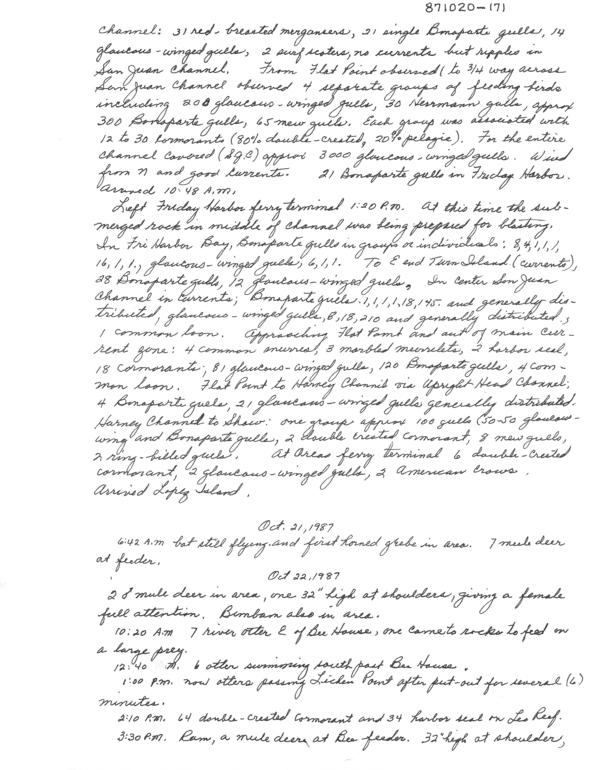 871020-171
Channel: 31 red-breasted mergansers, 21 single Bonaparte gulls, 14
glaucous-winged gulls, 2 surf scoters, no currents but ripples in
San Juan Channel. From Flat Point observed (to 3/4 way across
San Juan Channel observed 4 separate groups of feeding birds
including 208 glaucous-winged gulls, 30 Herrmann gulls, approx
300 Bonaparte gulls, 65 mew gulls. Each group was associated with
12 to 30 cormorants (80% double-crested, 20% pelagic). For the entire
channel covered (S.J.C) approx 3000 glaucous-winged gulls. Wind
from N and good currents. 21 Bonaparte gulls in Friday Harbor.
Arrived 10:48 A.M.
Left Friday Harbor ferry terminal 1:20 P.M. At this time the sub-
merged rock in middle of channel was being prepared for blasting.
In Fri Harbor Bay, Bonaparte gulls in groups or individuals: 8,4,1,1,1,
16,1,1., glaucous-winged gulls, 6,1,1. To E end Turn Island (currents),
28 Bonaparte gulls, 12 glaucous-winged gulls. In center San Juan
Channel in currents; Bonaparte gulls 1,1,1,1,18,145 and generally dis-
tributed, glaucous-winged gulls, 8,18,210 and generally distributed,
1 common loon. Approaching Flat Point and out of main cur-
rent zone: 4 common murres, 3 marbled murrelets, 2 harbor seal,
18 cormorants, 81 glaucous-winged gulls, 120 Bonaparte gulls, 4 com-
mon loon. Flat Point to Harney Channel via Upright Head Channel;
4 Bonaparte gulls, 21 glaucous-winged gulls generally distributed.
Harney Channel to Shaw: one group approx 100 gulls (50-50 glaucous-
wing and Bonaparte gulls, 2 double crested cormorant, 8 mew gulls,
2 ring-billed gulls. At Orcas ferry terminal 6 double-crested
cormorant, 2 glaucous-winged gulls, 2 American crows.
Arrived Lopez Island.
Oct. 21, 1987
6:42 A.M bat still flying and first horned grebe in area. 7 mule deer
at feeder.
Oct 22, 1987
2 ♂ mule deer in area, one 32" high at shoulders, giving a female
full attention. Bimbam also in area.
10:20 A.M 7 river otter E of Bee House, one came to rocks to feed on
a large prey.
12:40 M. 6 otter swimming south past Bee House.
1:00 P.M. now otters passing Lichen Point after put-out for several (6)
minutes.
2:10 P.M. 64 double-crested cormorant and 34 harbor seal on Leo Reef.
3:30 P.M. Ram, a mule deer, at Bee feeder. 32" high at shoulder,